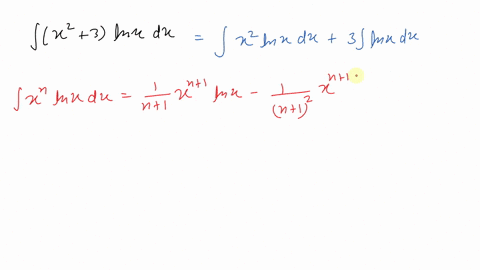 ∫(x² + 3) ln x dx = ∫ x² ln x dx + 3∫ ln x dx
∫ xⁿ ln x dx = 1/(n+1) xⁿ⁺¹ ln x − 1/(n+1)² xⁿ⁺¹